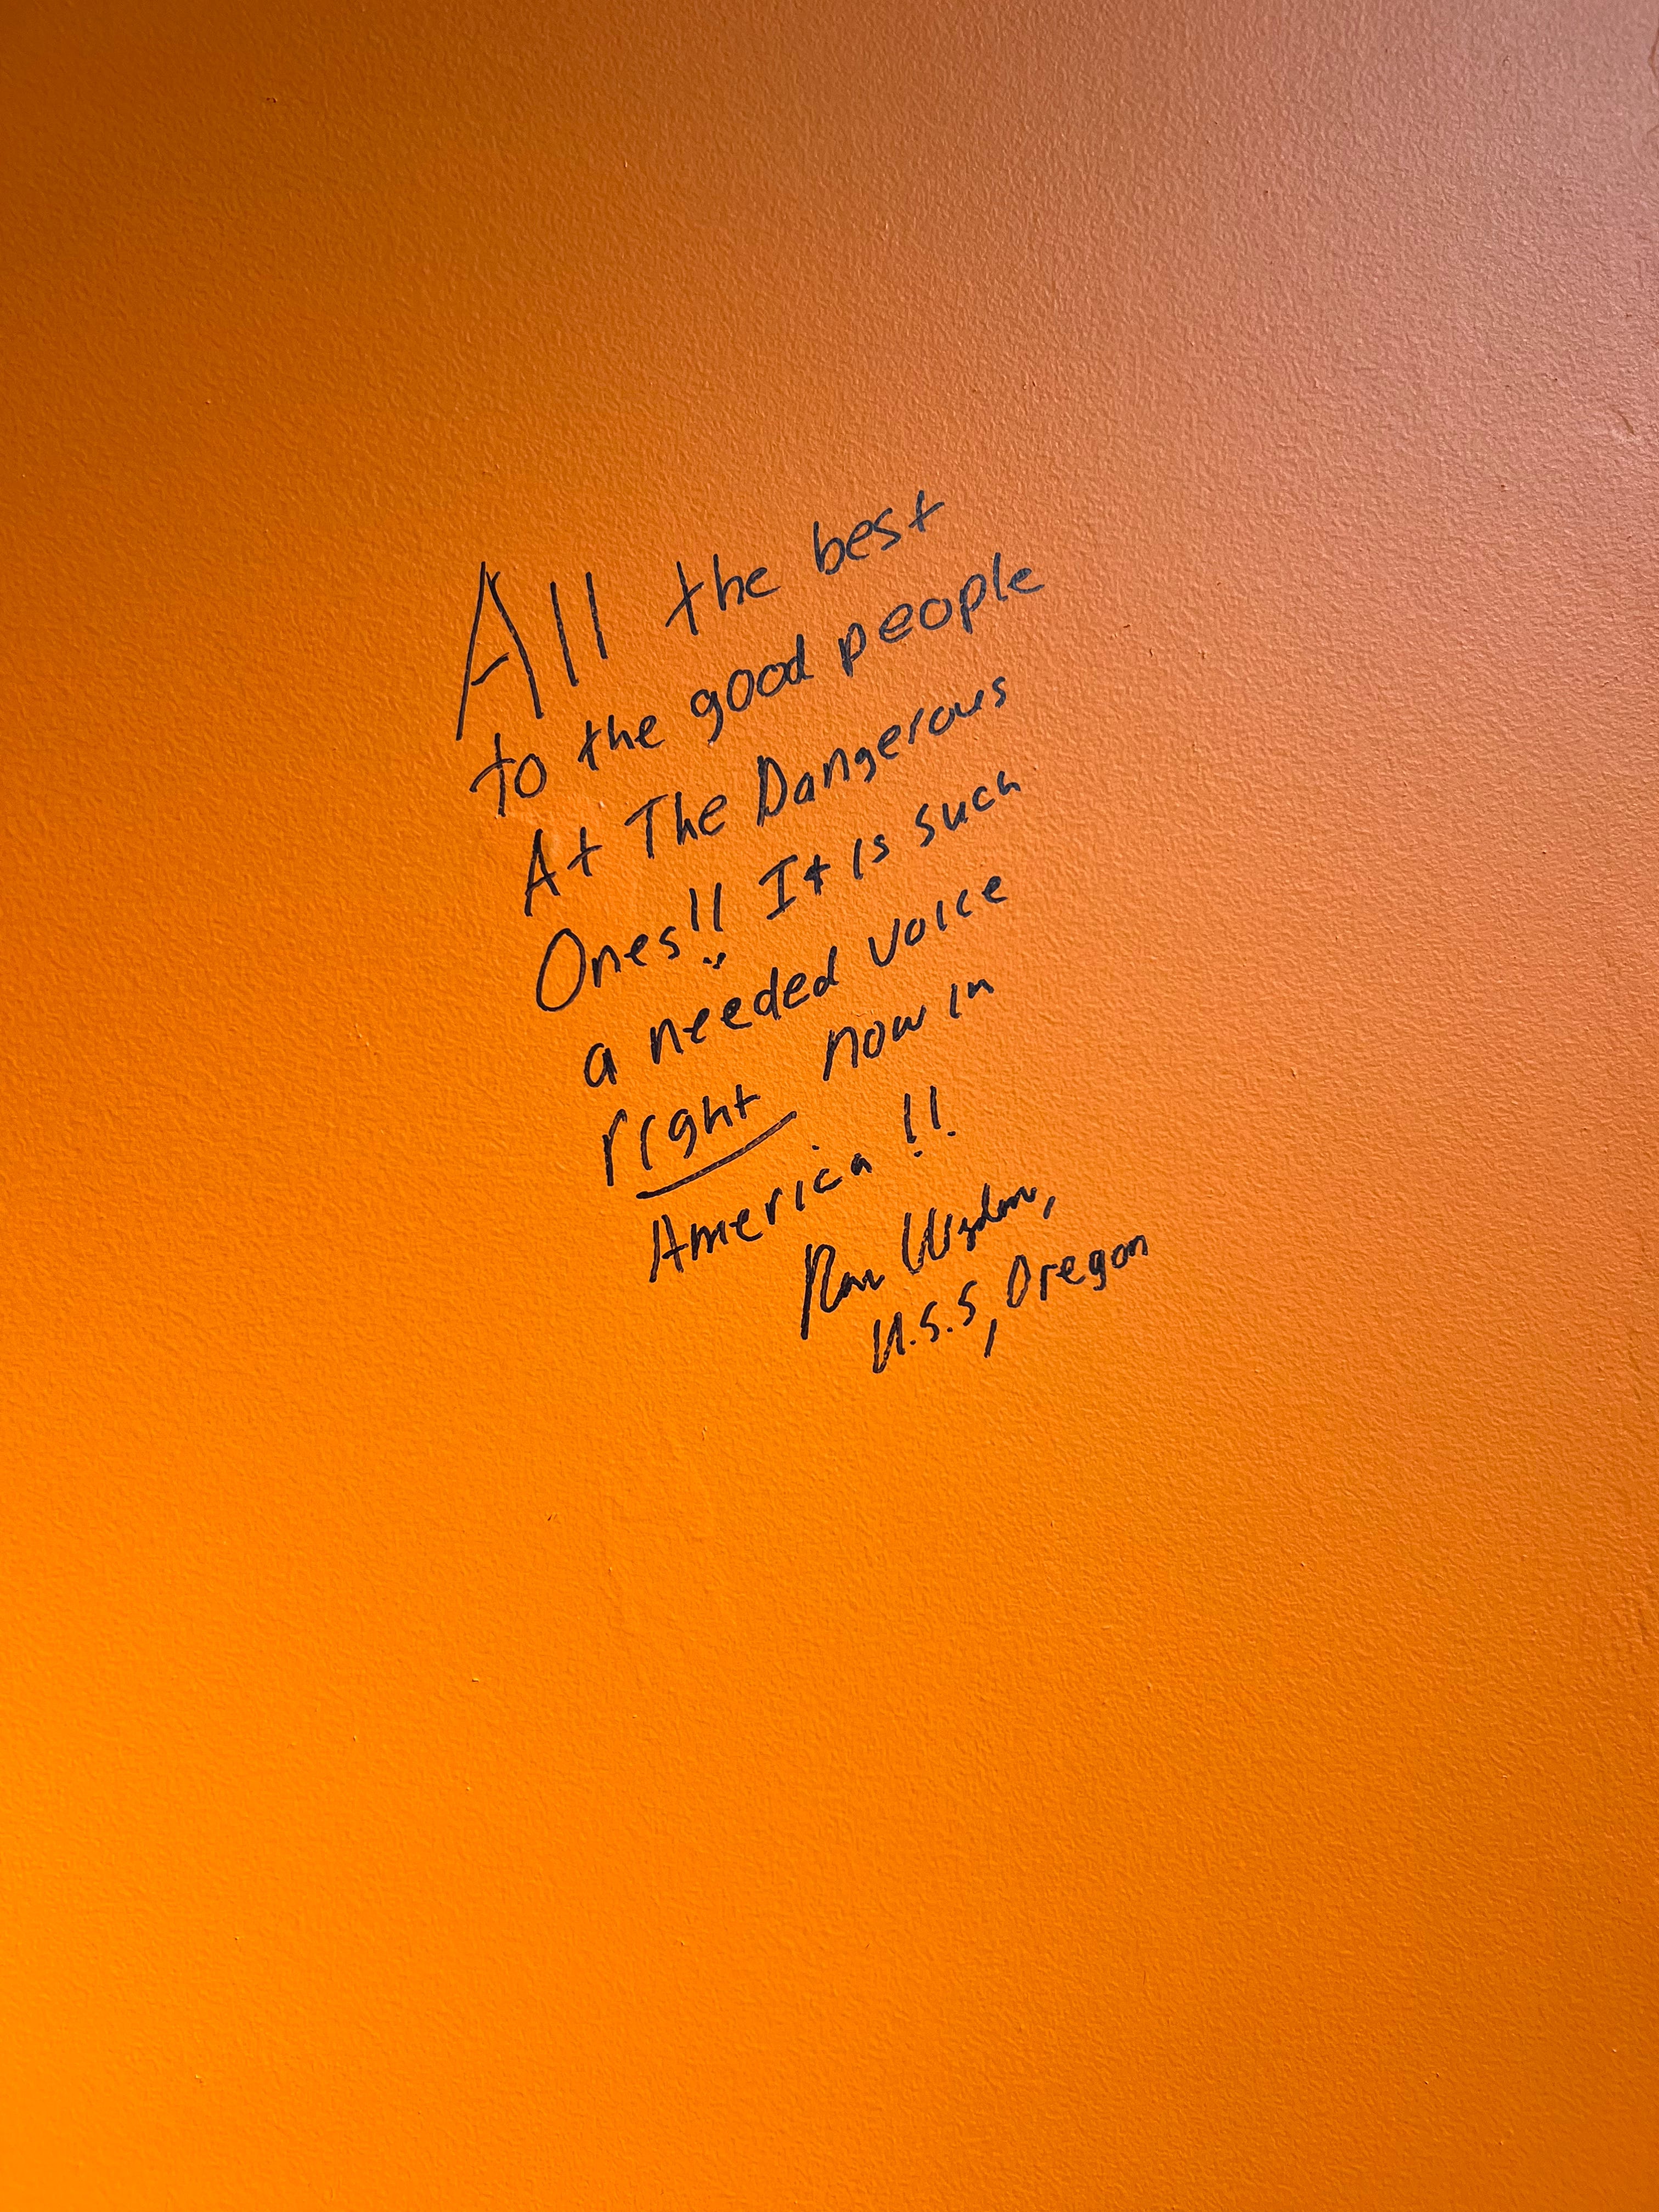 All the best
to the good people
At The Dangerous
Ones!! It is such
a needed voice
right now in
America!!
Ron Wyden,
U.S.S, Oregon